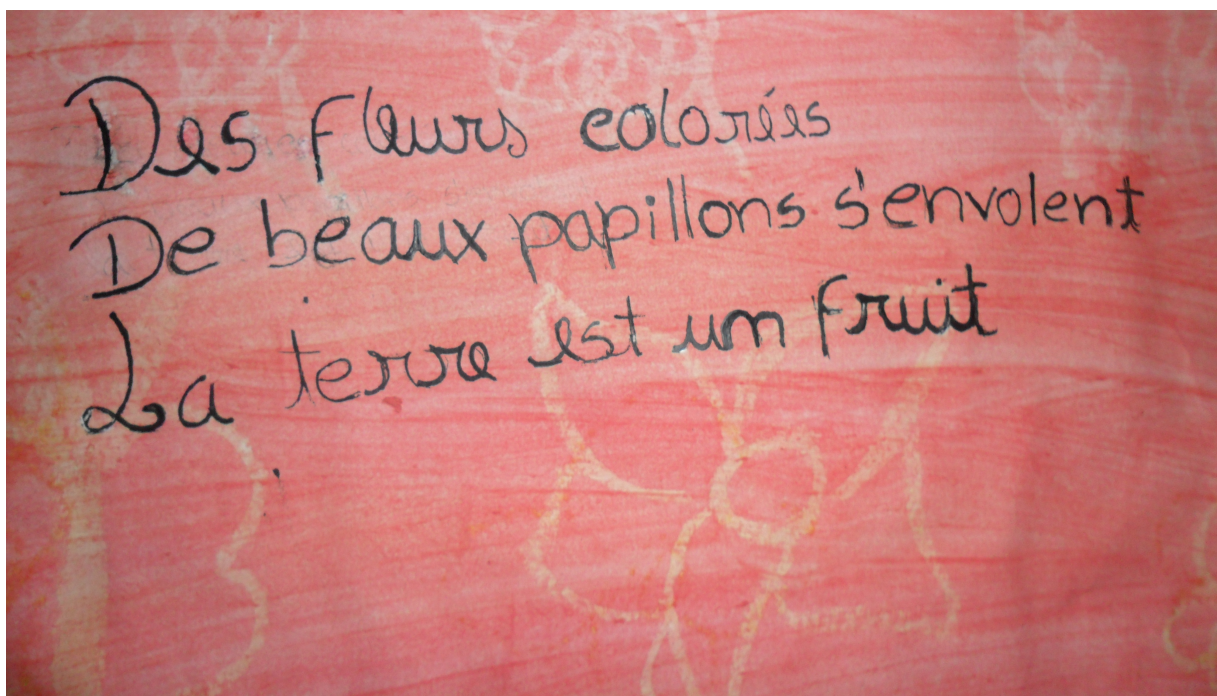 Des fleurs coloriées
De beaux papillons s'envolent
La terre est un fruit